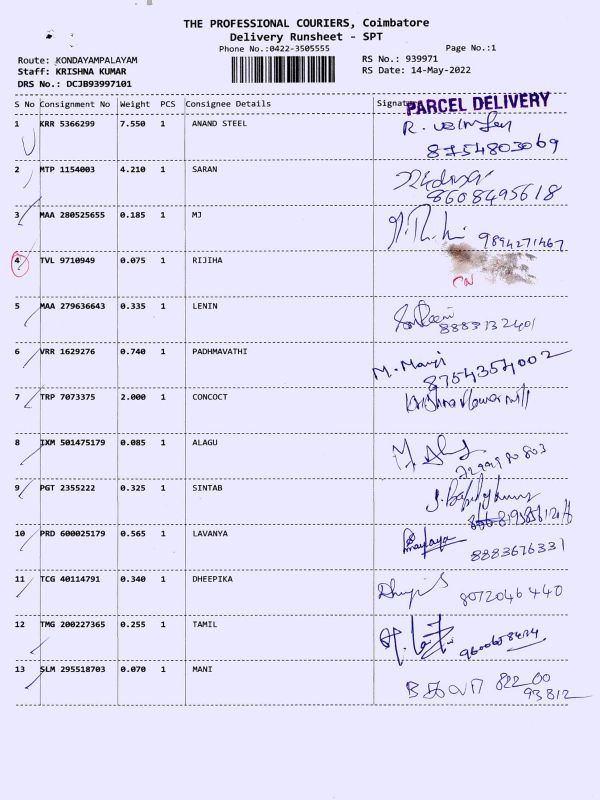 THE PROFESSIONAL COURIERS, Coimbatore
Delivery Runsheet - SPT
Phone No.:0422-3505555
Page No.:1
Route: KONDAYAMPALAYAM
RS No.: 939971
Staff: KRISHNA KUMAR
RS Date: 14-May-2022
DRS No.: DCJB93997101
S No Consignment No Weight PCS Consignee Details Signature
PARCEL DELIVERY
1 KRR 5366299 7.550 1 ANAND STEEL
8754803069
2 MTP 1154003 4.210 1 SARAN
8608495618
3 MAA 280525655 0.185 1 MJ
9894271467
4 TVL 9710949 0.075 1 RIJIHA
5 MAA 279636643 0.335 1 LENIN
8883132401
6 VRR 1629276 0.740 1 PADHMAVATHI
M. Mani
8754354002
7 TRP 7073375 2.000 1 CONCOCT
Krishna flower mill
8 IXM 501475179 0.085 1 ALAGU
9 PGT 2355222 0.325 1 SINTAB
10 PRD 600025179 0.565 1 LAVANYA
8883676331
11 TCG 40114791 0.340 1 DHEEPIKA
8072046440
12 TMG 200227365 0.255 1 TAMIL
13 SLM 295518703 0.070 1 MANI
822 00
93812